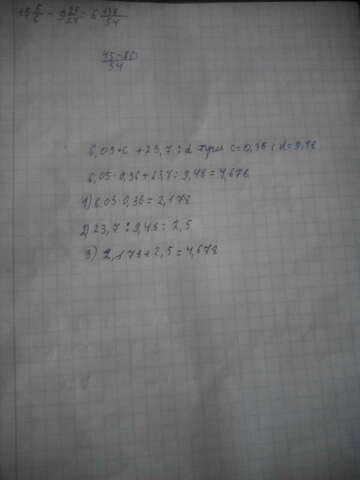 45-80
54
6,05·c + 23,7 : d при c=0,36 и d=9,48
6,05·0,36+23,7:9,48=4,678
1) 6,05·0,36=2,178
2) 23,7:9,48=2,5
3) 2,178+2,5=4,678